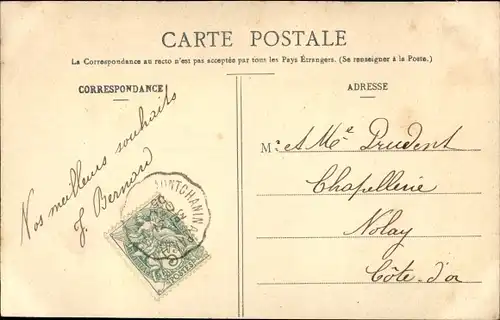 CARTE POSTALE
La Correspondance au recto n'est pas acceptée par tous les Pays Étrangers. (Se renseigner à la Poste.)
CORRESPONDANCE
Nos meilleurs souhaits
J. Bernard
MONTCHANIN
ADRESSE
M. et Me Prudent
Chapellerie
Nolay
Côte-d'or